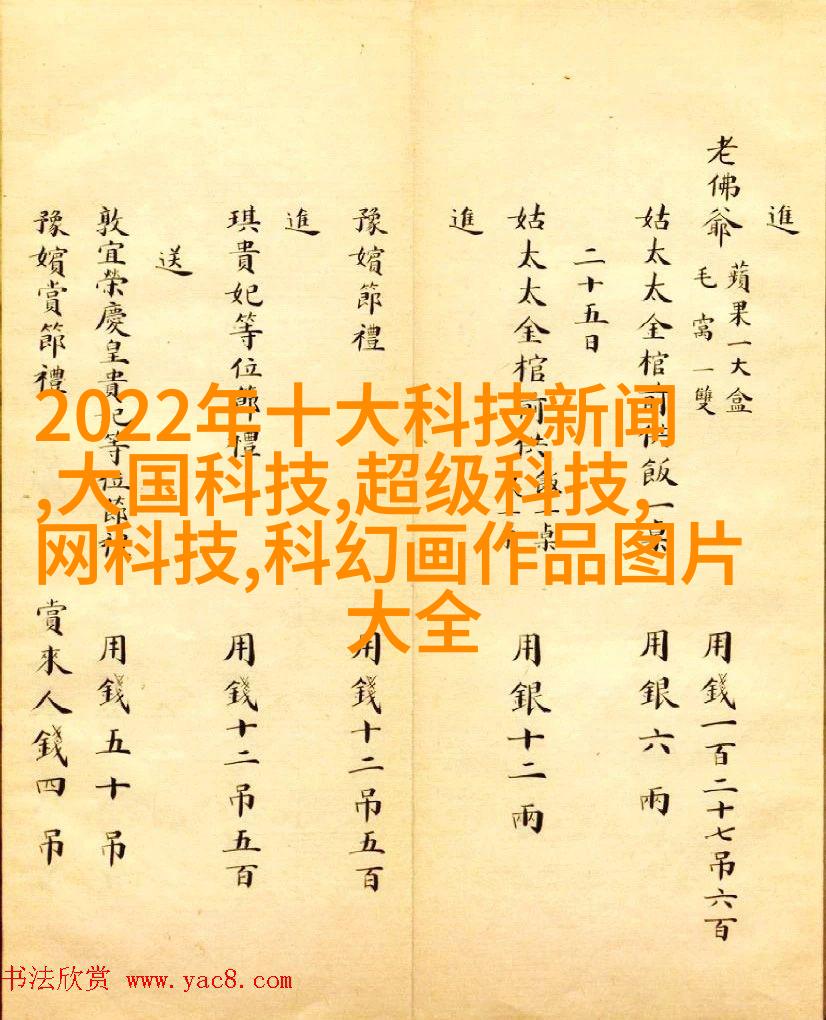 進
老佛爺 蘋果一大盒
毛窩一雙 用錢一百二十七吊六百
姑太太金棺前供飯一桌 用銀六兩
二十五日
姑太太金棺前供飯 桌 用銀十二兩
進
豫嬪節禮 用錢十二吊五百
進
琪貴妃等位節禮 用錢十二吊五百
送
敦宜榮慶皇貴妃等位節禮 用錢五十吊
豫嬪賞節禮 賞來人錢四吊
2022年十大科技新闻
,大国科技,超级科技,
网科技,科幻画作品图片
大全
书法欣赏 www.yac8.com